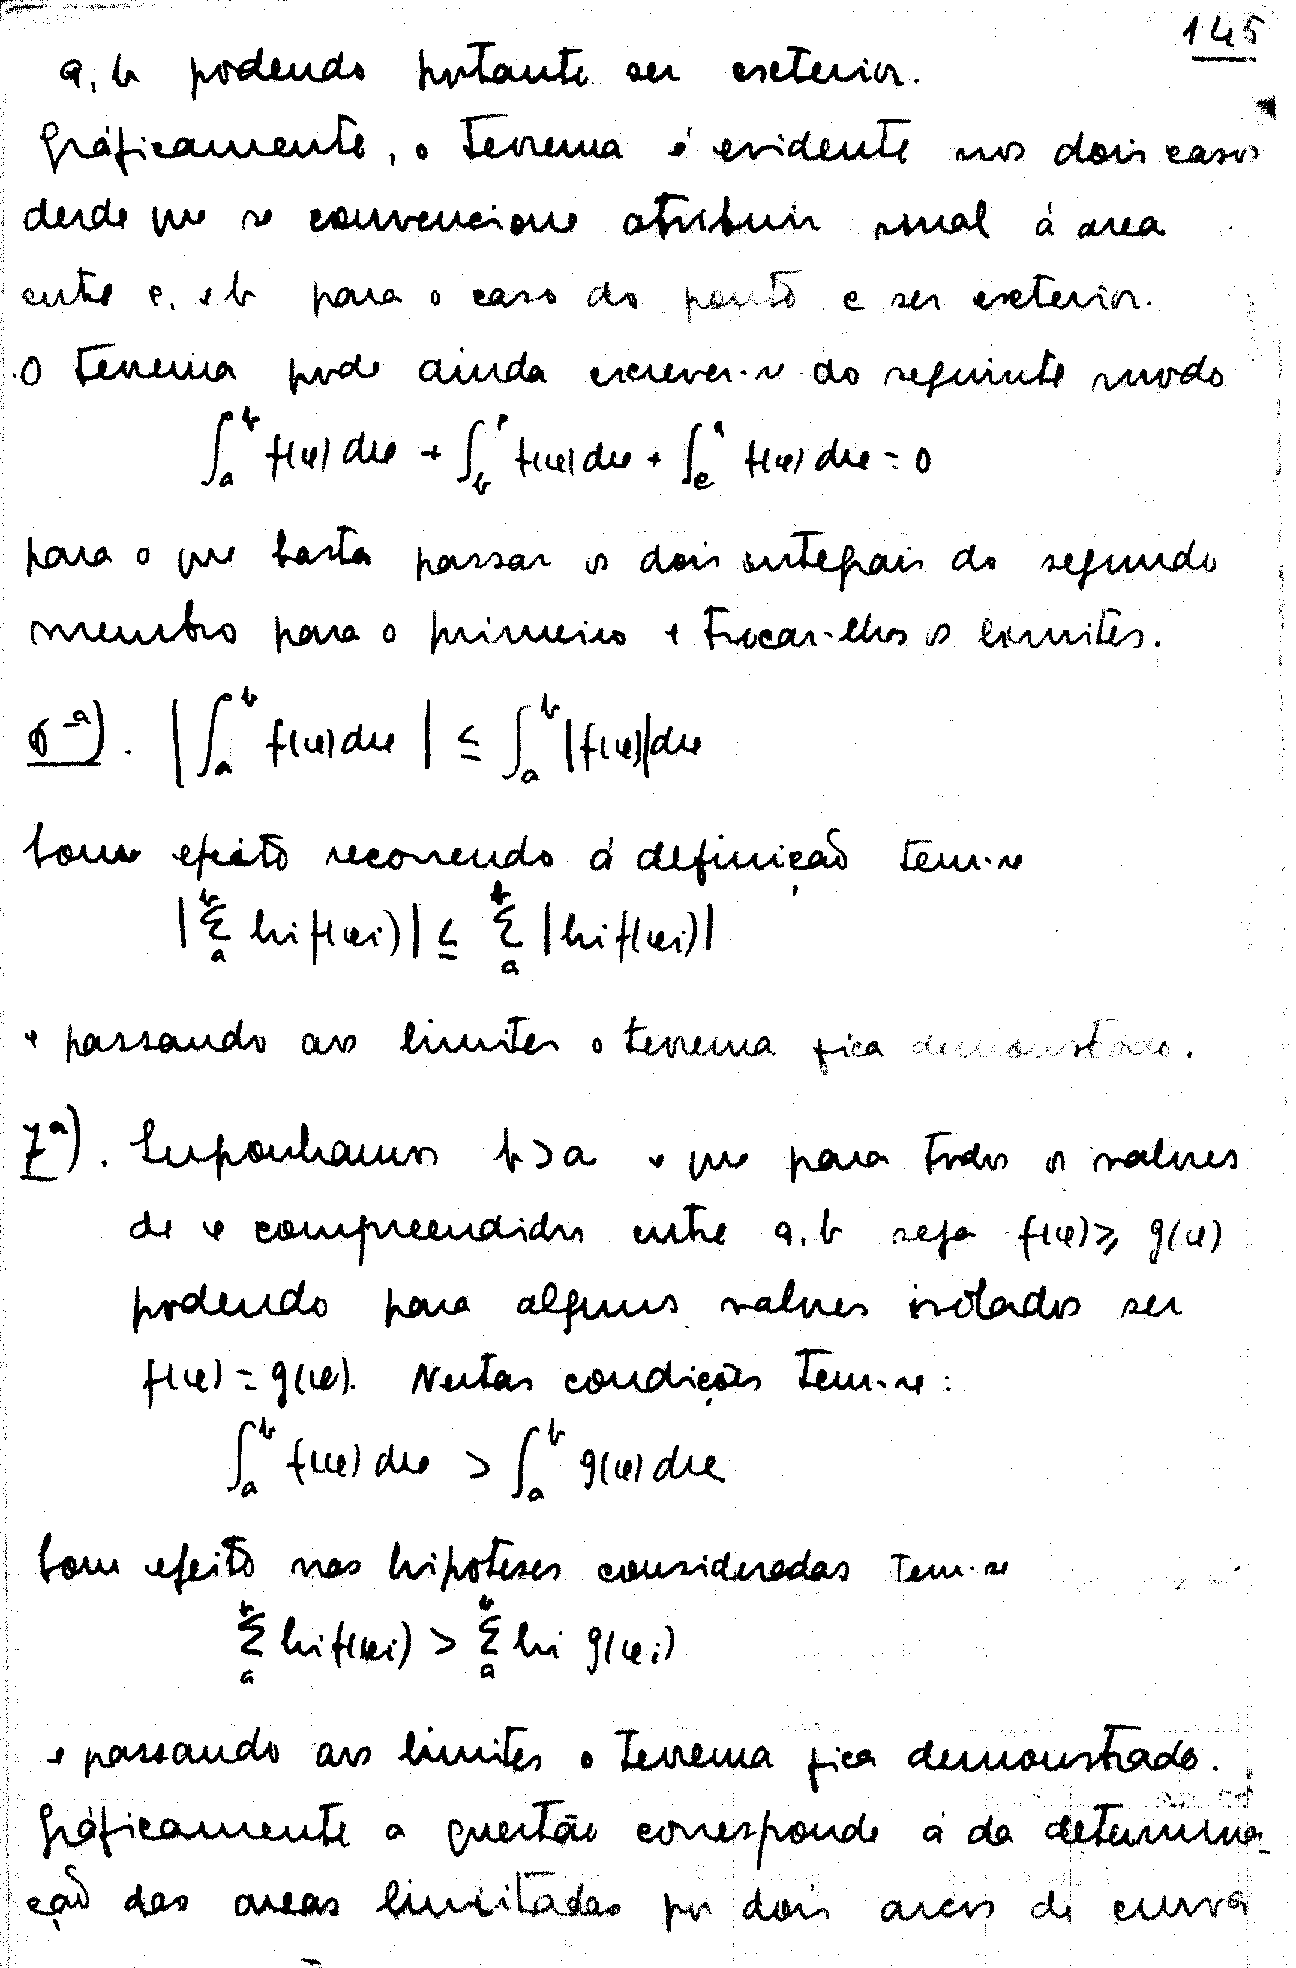 145
a, b podendo portanto ser exterior.
Gráficamente, o teorema é evidente nos dois casos
desde que se convencione atribuir sinal á area
entre c, e b para o caso do ponto c ser exterior.
O teorema pode ainda escrever-se do seguinte modo
∫_a^b f(x) dx + ∫_b^c f(x) dx + ∫_c^a f(x) dx = 0
para o que basta passar os dois integrais do segundo
membro para o primeiro e trocar-lhes os limites.
6ª). |∫_a^b f(x) dx| ≤ ∫_a^b |f(x)| dx
Com efeito recorrendo á definição tem-se
|Σ_a^b hi f(xi)| ≤ Σ_a^b |hi f(xi)|
e passando aos limites o teorema fica demonstrado.
7ª). Suponhamos b > a e que para todos os valores
de x compreendidos entre a, b seja f(x) ≥ g(x)
podendo para alguns valores isolados ser
f(x) = g(x). Nestas condições tem-se:
∫_a^b f(x) dx > ∫_a^b g(x) dx
Com efeito nas hipoteses consideradas tem-se
Σ_a^b hi f(xi) > Σ_a^b hi g(xi)
e passando aos limites o teorema fica demonstrado.
Gráficamente a questão corresponde á da determina-
ção das areas limitadas por dois arcos de curva